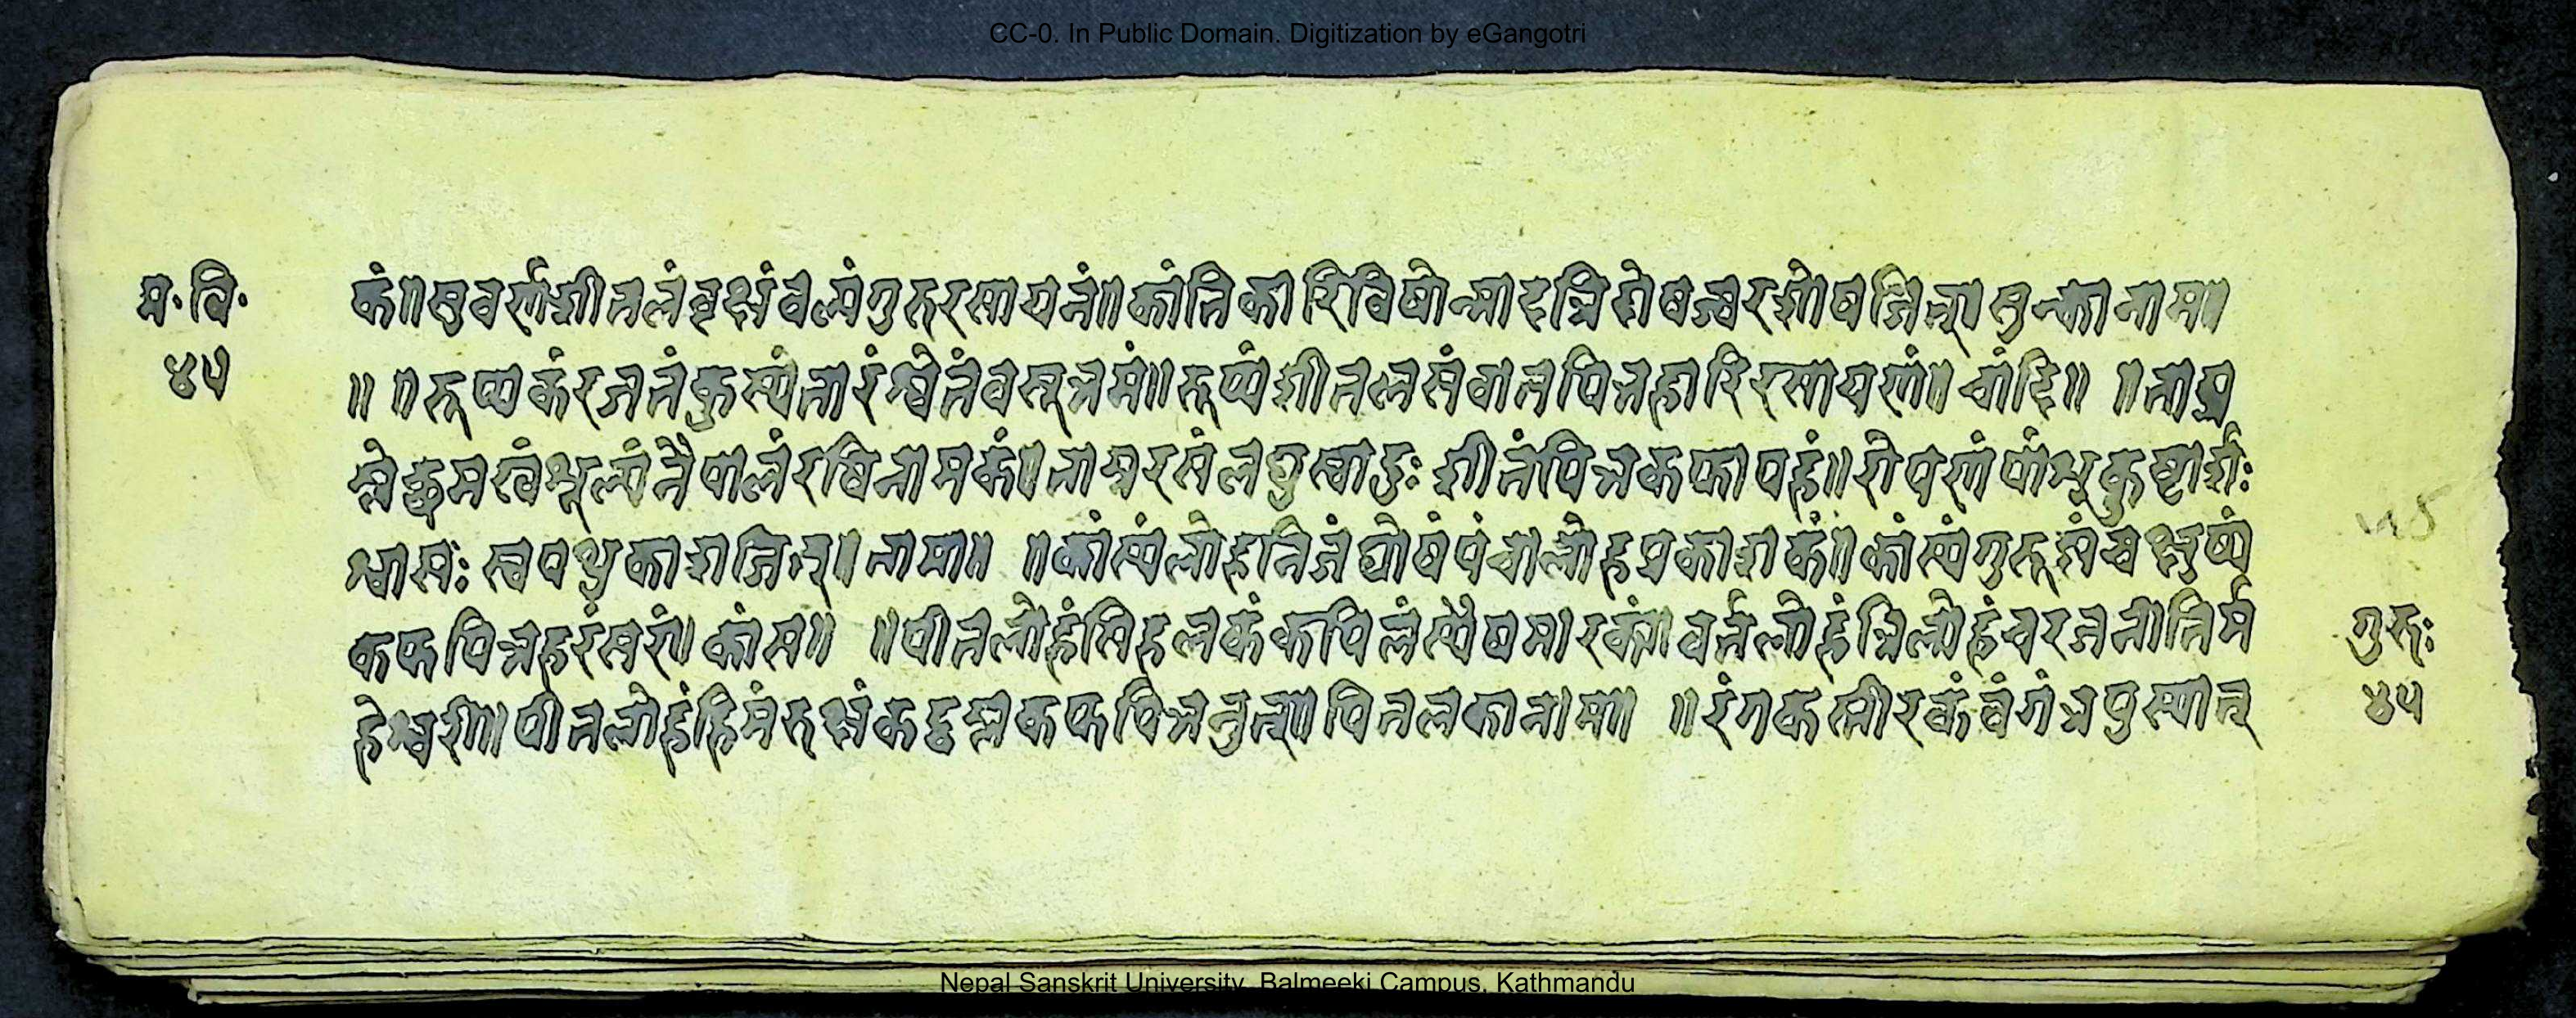 CC-0. In Public Domain. Digitization by eGangotri
म॰ वि॰
४५
कं॥ सुवर्णं शीतलं वृक्षं वल्यं गुरु रसायनं॥ कांतिकारि विषोन्माद त्रिदोषज्वरशोषजित्॥ सुन्कानाम॥
॥ ॥ रूप्यकं रजतं कुप्यं तारं श्वेतं वसूत्रमं॥ रूप्यं शीतलसं वातपित्तहारि रसायणं॥ चांदि॥ ॥ ताम्र
म्लेछमखं शूल्वं नेपालं रविनामकं॥ ताम्रं रसं लघु स्वादुः शीतं पित्तकफापहं॥ रोपणं पांडुकुष्टार्शः
श्वासः स्वपथुकाशजित्॥ तामा॥ ॥ कांस्यं लोहनिजं घोषं पंचालोहप्रकाशकं॥ कांस्यं गुरूष्णं चक्षुष्यं
कफपित्तहरं सरं॥ कांस॥ ॥ पीतलोहं सिंहलकं कपिलं सौषमारकां॥ वर्तलोहं त्रिलोहं च रजनीतिर्म
हेश्वरी॥ पीतलोहं हिमं रुक्षं कटूम्लकफपित्तनुत्॥ पितलकानाम॥ ॥ रंगकस्तीरकं वंगं त्रपु स्यात्
गुरुः
४५
45
Nepal Sanskrit University, Balmeeki Campus, Kathmandu